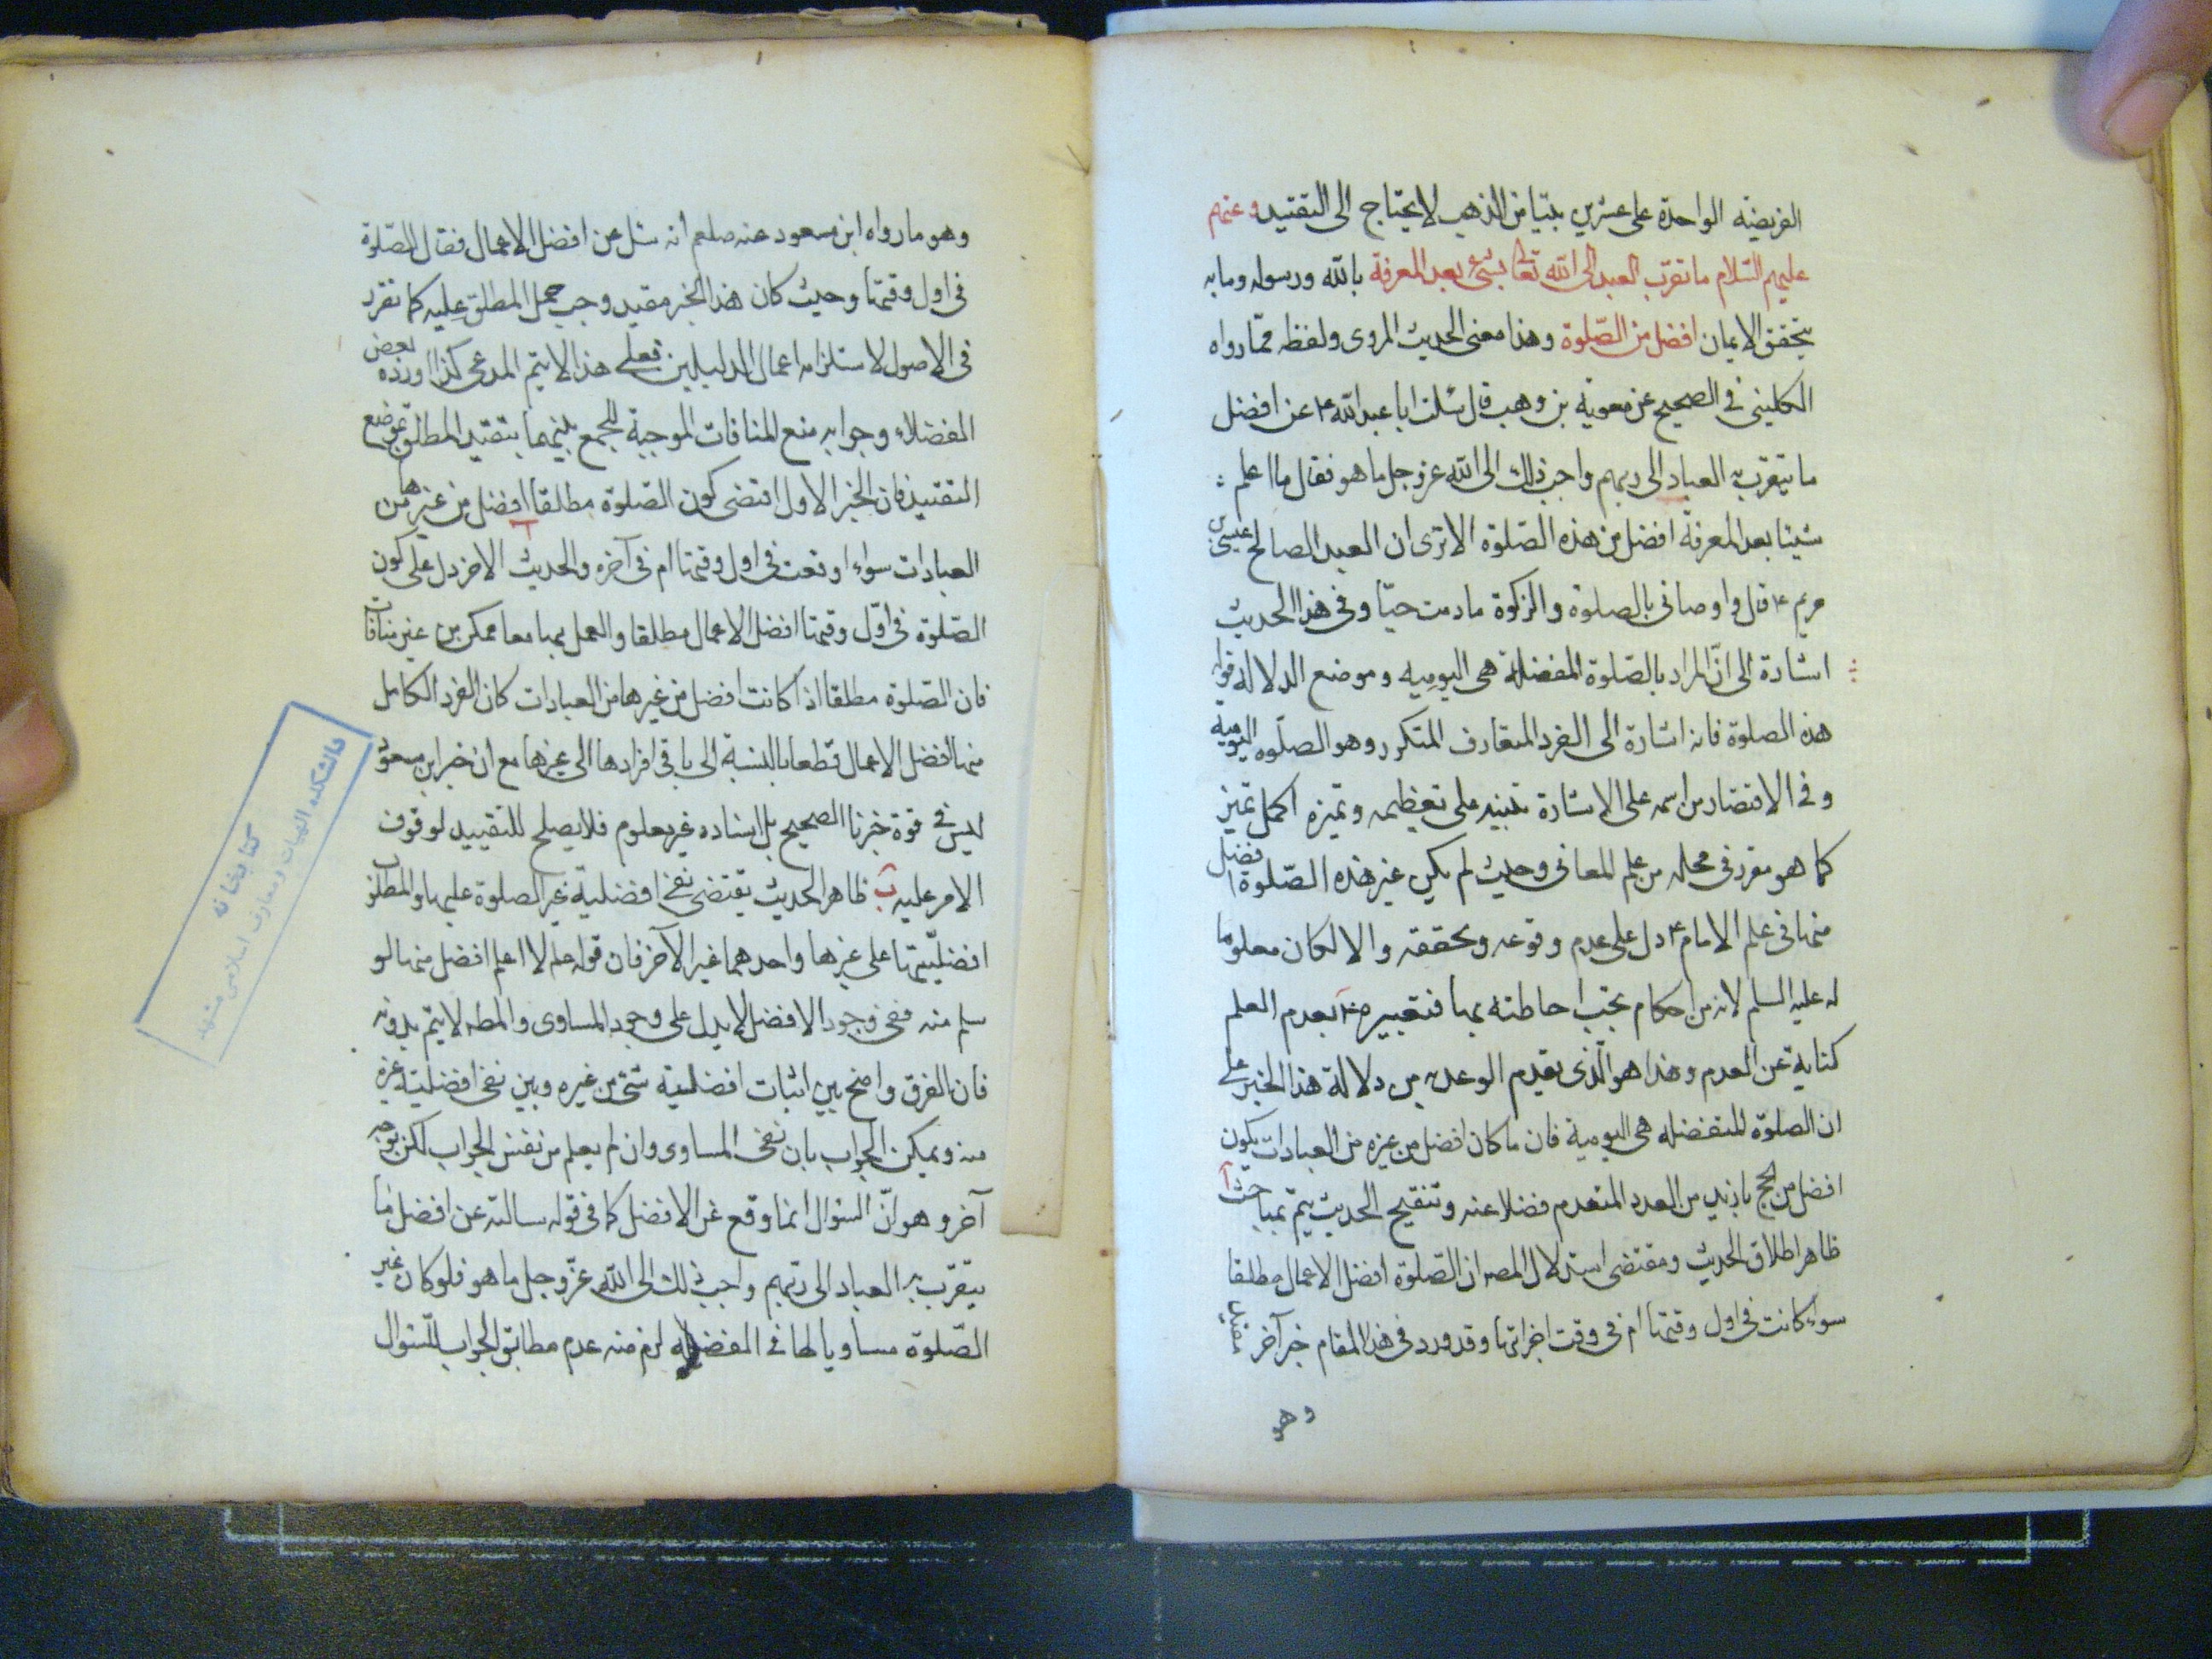 الفريضة الواحدة على عشرين بيتا من الذهب لا يحتاج الى التقييد وعنهم
عليهم السّلام ما تقرّب العبد الى الله تعالى بشئ بعد المعرفة بالله ورسوله وما به
يتحقق الايمان افضل من الصّلوة وهذا معنى الحديث المروى ولفظه ممّا رواه
الكلينى فى الصحيح عن معوية بن وهب قال سئلت ابا عبد الله ع عن افضل
ما يتقرب به العباد الى ربهم واحب ذلك الى الله عز وجل ما هو فقال ما اعلم
شيئا بعد المعرفة افضل من هذه الصّلوة الا ترى ان العبد الصالح عيسى بن
مريم ع قال واوصانى بالصلوة والزكوة ما دمت حيّا وفى هذا الحديث
اشادة الى انّ المراد بالصّلوة المفضلة هى اليوميه وموضع الدلالة قوله
هذه الصلوة فانه اشارة الى الفرد المتعارف المتكرر وهو الصلوه اليومية
وفى الاقتصار من اسمه على الاشارة تنبيه على تعظيمه وتميزه اكمل تميز
كما هو مقرر فى محله من علم المعانى وحيث لم يكن غير هذه الصّلوة افضل
منها فى علم الامام ع دل على عدم وقوعه وتحققه والا لكان معلوما
له عليه السلم لانه من احكام يجب احاطته بها فتعبيره بعدم العلم
كناية عن العدم وهذا هو الّذى يقدم الوعد به من دلالة هذا الخبر على
ان الصلوة المتفضله هى اليومية فان ما كان افضل من غيره من العبادات يكون
افضل من الحج بازيد من العدد المتقدم فضلا عنه وتنقيح الحديث يتمّ بمباحث آ
ظاهر اطلاق الحديث ومقتضى استدلال المصه ان الصّلوة افضل الاعمال مطلقا
سواء كانت فى اول وقتها ام فى وقت اجزائها وقد ورد فى هذا المقام خبر آخر مقيد
وهو
وهو ما رواه ابن مسعود عنه صلعم انه سئل عن افضل الاعمال فقال الصّلوة
فى اول وقتها وحيث كان هذا الخبر مقيد وجب حمل المطلق عليه كما تقرر
فى الاصول لاستلزامه اعمال الدليلين فعلى هذا لا يتم المدعى كذا اورده بعض
الفضلاء وجوابه منع المنافات الموجبة للجمع بينهما بتقييد المطلق بموضع
التقييد فان الخبر الاول اقتضى كون الصّلوة مطلقا افضل من غيرها من
العبادات سواء اوقعت فى اول وقتها ام فى آخره والحديث الاخر دل على كون
الصّلوة فى اوّل وقتها افضل الاعمال مطلقا والعمل بهما معا ممكن من غير منافات
فان الصّلوة مطلقا اذا كانت افضل من غيرها من العبادات كان الفرد الكامل
منها افضل الاعمال قطعا بالنسبة الى باقى افرادها الى غيرها مع ان خبر ابن مسعود
ليس فى قوة خبرنا الصحيح بل اسناده غير معلوم فلا يصلح للتقييد لوقوف
الامر عليه ب ظاهر الحديث يقتضى نفى افضلية غير الصلوة عليها والمطلوب
افضليّتها على غيرها واحدهما غير الآخر فان قوله علم لا اعلم افضل منها لو
سلم منه نفى وجود الافضل لا يدل على وجود المساوى والمطه لا يتم بدونه
فان الفرق واضح بين اثبات افضلية شئ من غيره وبين نفى افضلية غيره
منه ويمكن الجواب بان نفى المساوى وان لم يعلم من نفس الجواب لكن بوجه
آخر وهو انّ السؤال انما وقع عن الافضل كما فى قوله سالته عن افضل ما
يتقرّب به العباد الى ربّهم واحب ذلك الى الله عزّ وجل ما هو فلو كان غير
الصّلوة مساويا لها فى الفضيلة لزم منه عدم مطابق الجواب للسئوال
كتابخانه
دانشكده الهيات ومعارف اسلامى مشهد